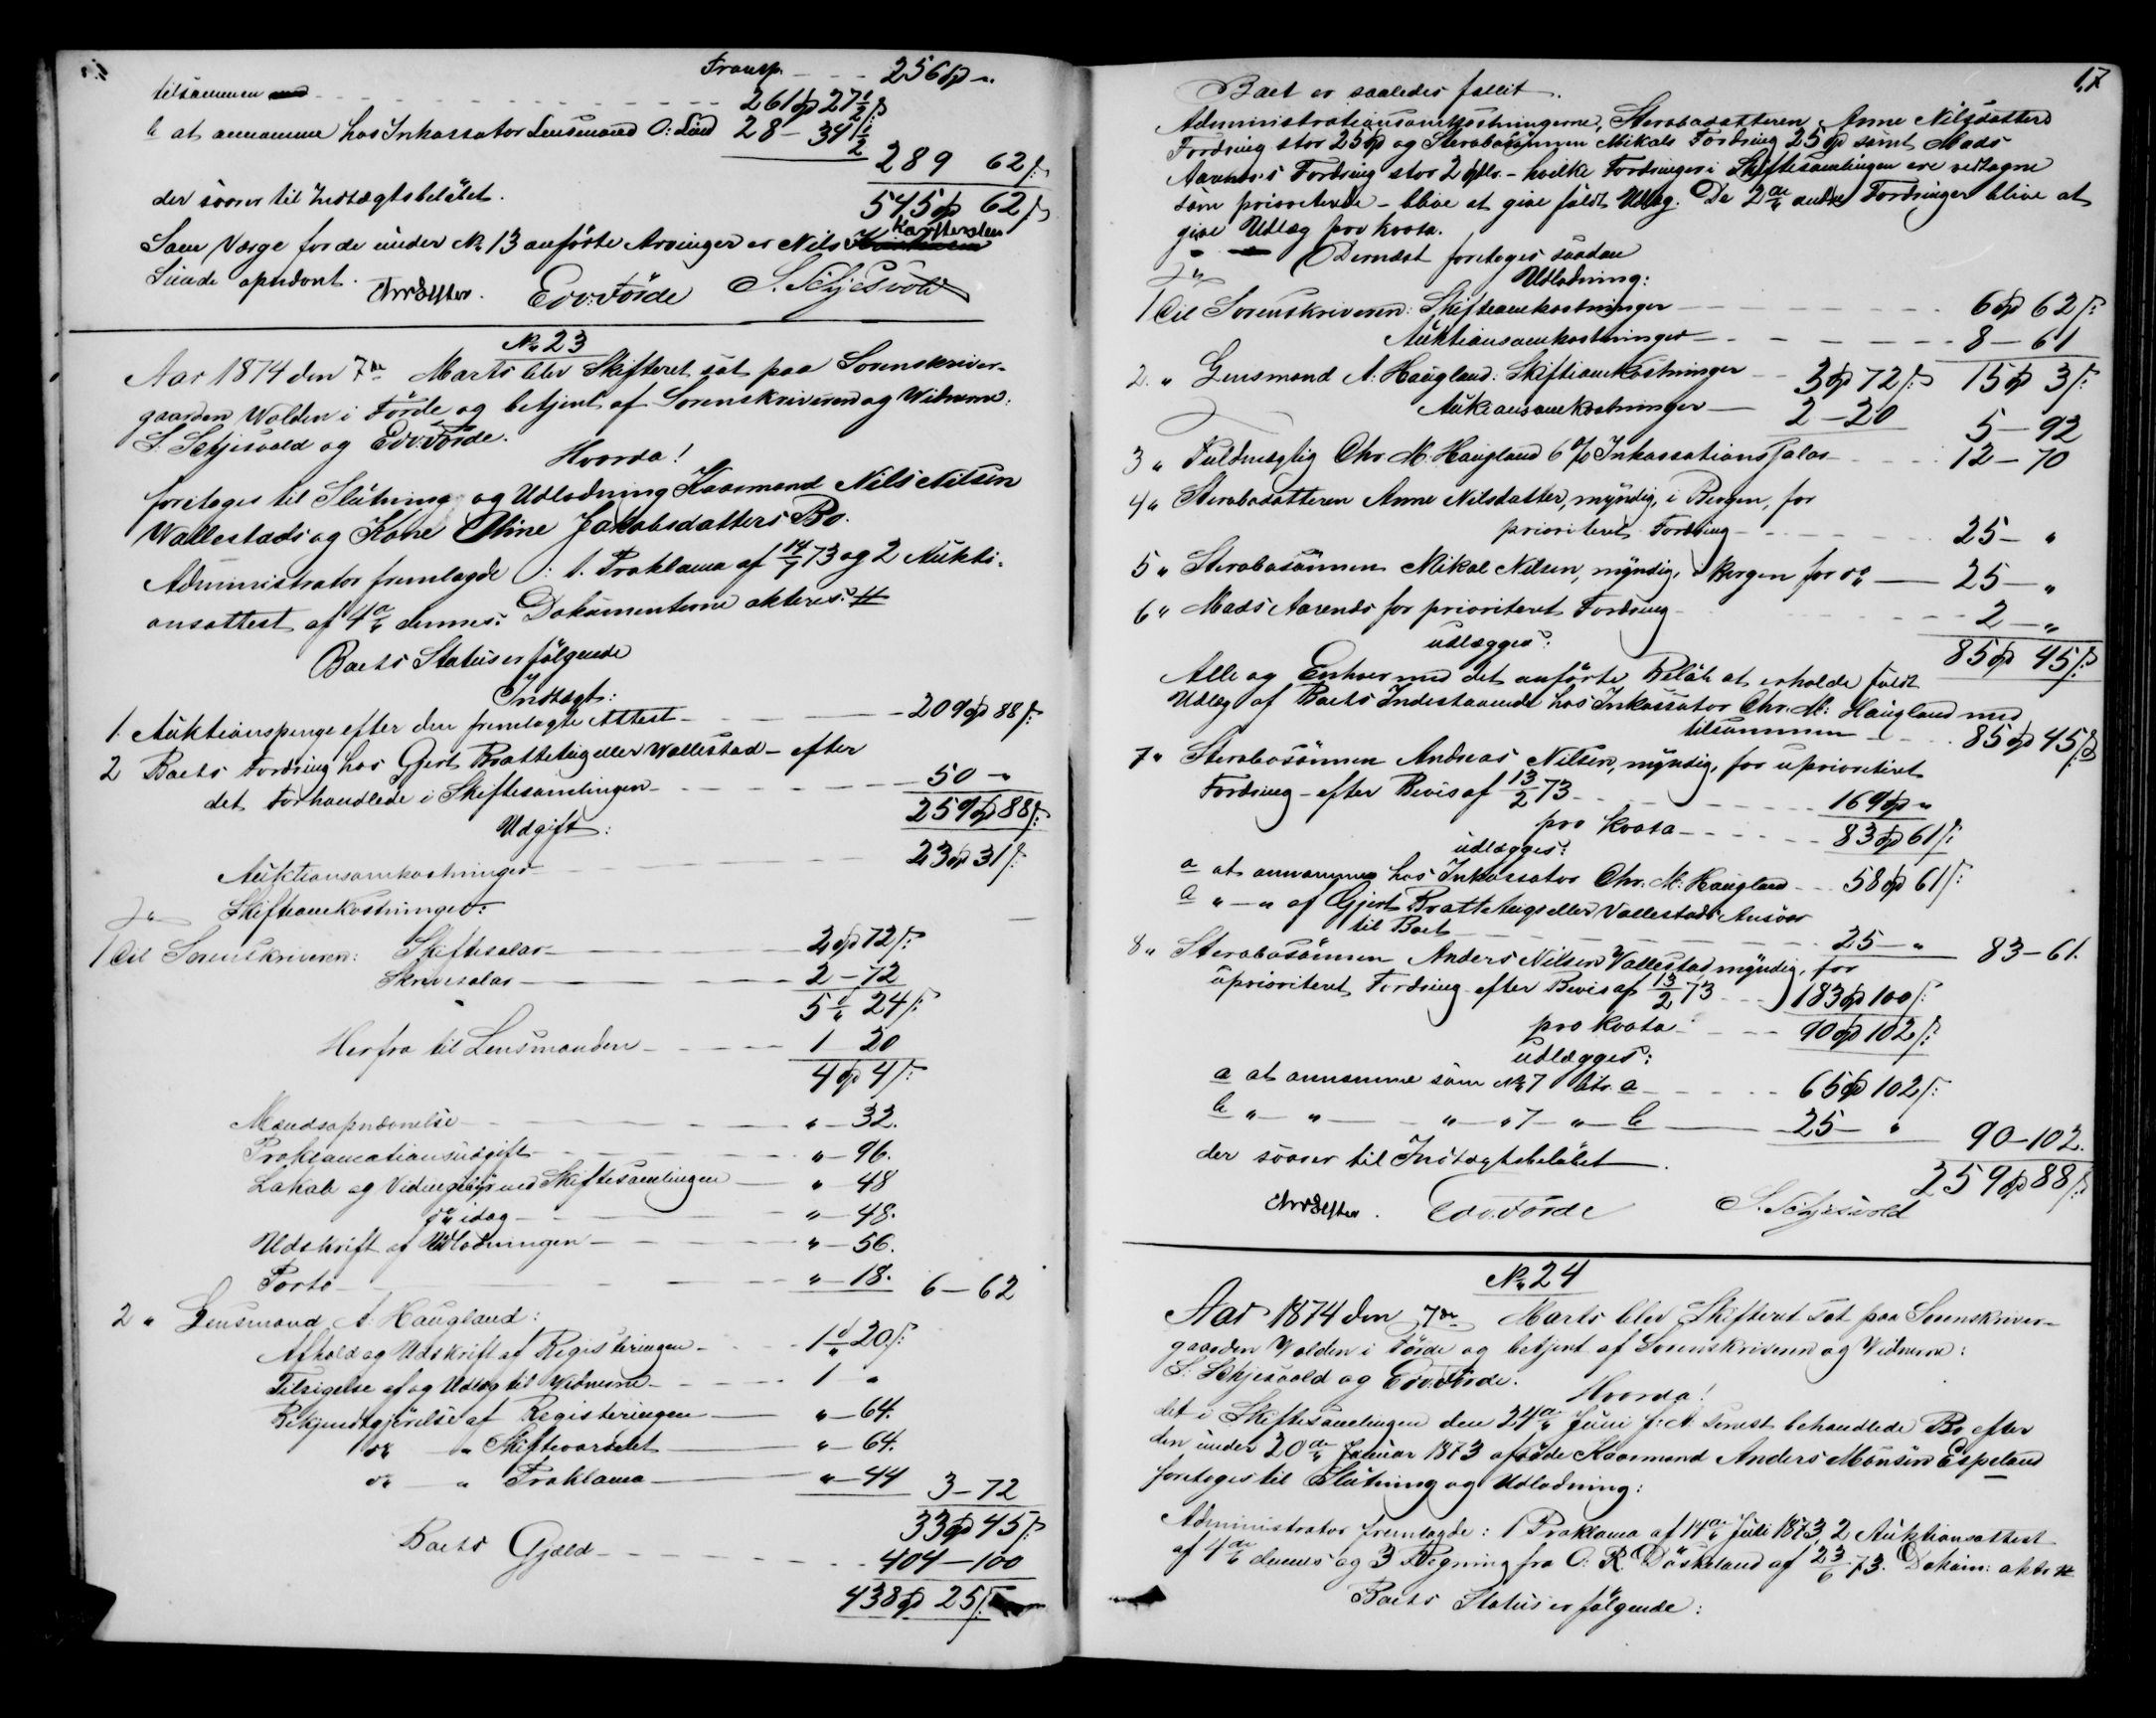 Transp. - - - 256 Spd "
tilsammen - - - 261 Spd 27 1/2 ß
b at annamme hos Inkassator Lensmand O: Lund 28 - 34 1/2
289 62 ß
der svarer til Indtægtsbeløbet. 545 Spd 62 ß
Som Værge for de under No 13 anførte Arvinger er Nils Karstensen
Sunde opnævnt. Edv. Förde S. Schjesvold
No 23
Aar 1874 den 7de Marts blev Skifteret sat paa Sorenskriver-
gaarden Wolden i Förde og betjent af Sorenskriveren og Vidnerne:
S. Schjesvold og Edv. Förde.
Hvorda!
foretoges til Slutning og Udlodning Kaarmand Nils Nilsen
Wallestads og Kone Oline Jakobsdatters Bo.
Administrator fremlagde: 1. Proklama af 14/7 73 og 2 Aukti-
onsattest af 4de dennes. Dokumenterne akteres. #
Boets Status er følgende
Indtægt:
1. Auktionspenge efter den fremlagte Attest - - - 209 Spd 88 ß:
2 Boets Fordring hos Gjert Bratteteig eller Wallestad - efter
det Forhandlede i Skiftesamlingen - - - 50 - "
259 Spd 88 ß:
Udgift:
Auktionsomkostninger - - - 23 Spd 31 ß:
Skifteomkostninger:
1 Til Sorenskriveren: Skiftesalar - 2 Spd 72 ß:
Skriversalar - 2 - 72
5 d 24 ß:
Herfra til Lensmanden - - - 1 20
4 Spd 4 ß:
Mændsopnævnelse - - - " - 32.
Proklamationsudgift - - - " - 96.
Lokale og Vidnegebyr ved Skiftesamlingen - " - 48
do idag - - - " - 48.
Udskrift af Udlodningen - - - " - 56.
Porto - - - " - 18. 6 - 62
2 " Lensmand A. Haugland:
Afhold og Udskrift af Registeringen - - - 1 d 20 ß:
Tilsigelse af og Udlæg til Vidnerne - - - 1 "
Bekjendtgjørelse af Registeringen - " - 64.
do - " Skiftevarselet - " - 64.
do - " Proklama - " - 44 3 - 72
33 Spd 45 ß
Boets Gjæld - - - 404 - 100
438 Spd 25 ß
17
Boet er saaledes fallit.
Administrationsomkostningerne, Stervbodatteren Anne Nilsdatters
Fordring stor 25 Spd og Stervbosønnen Mikals Fordring 25 Spd samt Mads
Aarends's Fordring stor 2 Spdlr. - hvilke Fordringer i Skiftesamlingen ere vedtagne
som prioriterede - blive at give fuldt Udlæg. De 2de andre Fordringer blive at
give Udlæg pro kvota.
Dernæst foretoges saadan
Udlodning:
1 Til Sorenskriveren: Skifteomkostninger - - - 6 Spd 62 ß:
Auktionsomkostninger - - - 8 - 61
15 Spd 3 ß:
2. " Lensmand A: Haugland: Skifteomkostninger - - 3 Spd 72 ß:
Auktionsomkostninger - 2 - 20 5 - 92
3 " Fuldmægtig Chr. M. Haugland 6 % Inkassationssalar - - - 12 - 70
4 " Stervbodatteren Anne Nilsdatter, myndig, i Bergen, for
prioriteret Fordring - - - 25 - "
5 " Stervbosønnen Mikal Nilsen, myndig, i Bergen for do - 25 - "
6 " Mads Aarends for prioriteret Fordring - - - 2 - "
udlægges: 85 Spd 45 ß:
Alle og Enhver med det anførte Beløb at erholde fuldt
Udlæg af Boets Indestaaende hos Inkassator Chr. M: Haugland med
tilsammen - - - 85 Spd 45 ß
7 " Stervbosønnen Andreas Nilsen, myndig, for uprioriteret
Fordring - efter Bevis af 13/2 73 - - - 169 Spd "
pro kvota - - - 83 Spd 61 ß:
udlægges:
a at annamme hos Inkassator Chr. M. Haugland - - 58 Spd 61 ß:
b " - " af Gjert Bratteteigs eller Vallestads Ansvar
til Boet - - - 25 - " 83 - 61.
8 " Stervbosønnen Anders Nilsen Vallestad, myndig, for
uprioriteret Fordring efter Bevis af 13/2 73 - - 183 Spd 100 ß:
pro kvota - - - 90 Spd 102 ß:
udlægges:
a at annamme som No 7 Litr. a - - - 65 Spd 102 ß:
b " - " - " - " 7 - " - b - 25 - " 90 - 102.
der svarer til Indtægtsbeløbet. 259 Spd 88 ß
Edv. Förde S. Schjesvold
No 24
Aar 1874 den 7de Marts blev Skifteret sat paa Sorenskriver-
gaarden Volden i Førde og betjent af Sorenskriveren og Vidnerne:
S. Schjesvold og Edv. Förde.
Hvorda!
det i Skiftesamlingen den 24de Juni f: A. senest behandlede Bo efter
den under 20de Januar 1873 afdøde Kaarmand Anders Monsen Espeland
foretoges til Slutning og Udlodning:
Administrator fremlagde: 1 Proklama af 14de Juli 1873, 2 Auktionsattest
af 4de dennes og 3 Regning fra O. R. Døskeland af 23/6 73. Dokum: akts #
Boets Status er følgende: